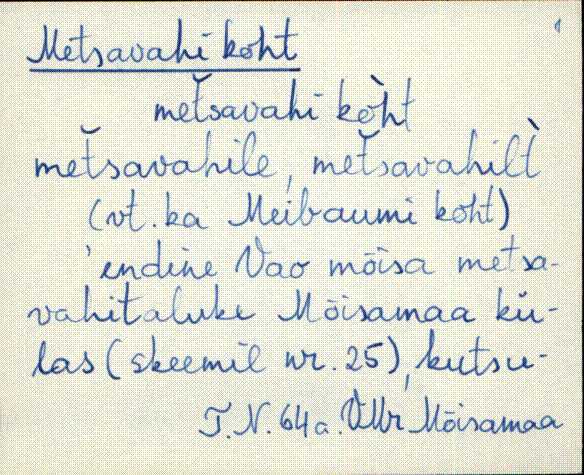 Metsavahi koht
1
metšavahi kòht
metšavahile, metšavahilt̀
(vt. ka Meibaumi koht)
'endine Vao mõisa metsa-
vahitaluke Mõisamaa kü-
las (skeemil nr. 25), kutsu-
T.N. 64a. VMr Mõisamaa